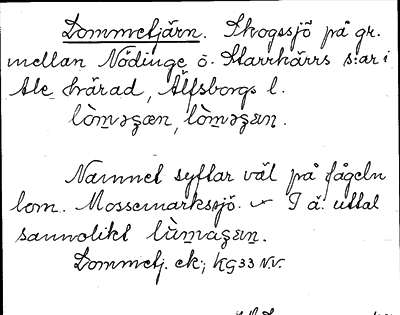 Lommetjärn. Skogssjö på gr.
mellan Nödinge o. Starrkärrs s:ar i
Ale härad, Älfsborgs l.
lòməʂæn, lòməʂɛn.
Namnet syftar väl på fågeln
lom. Mossemarkssjö. I ä. uttal
sannolikt lùmaʂɛn.
Lommetj. ek; KG33 N.V.